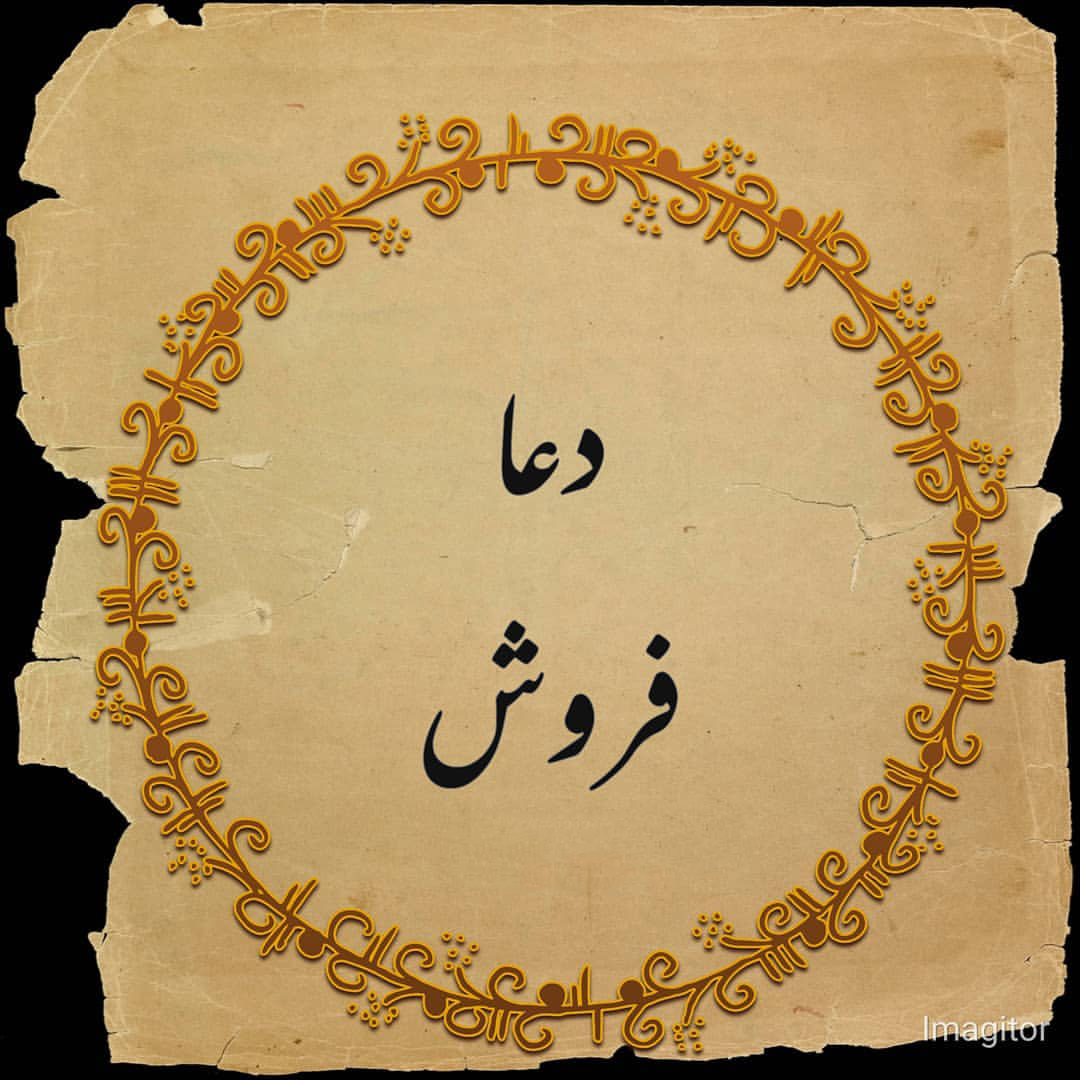 دعا
فروش
Imagitor